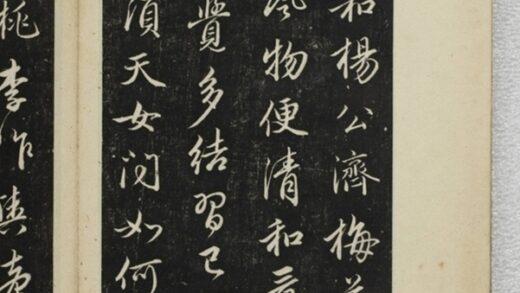 和楊公濟梅
物便清和
覺多結習已
須天女问如何
桃李作輿